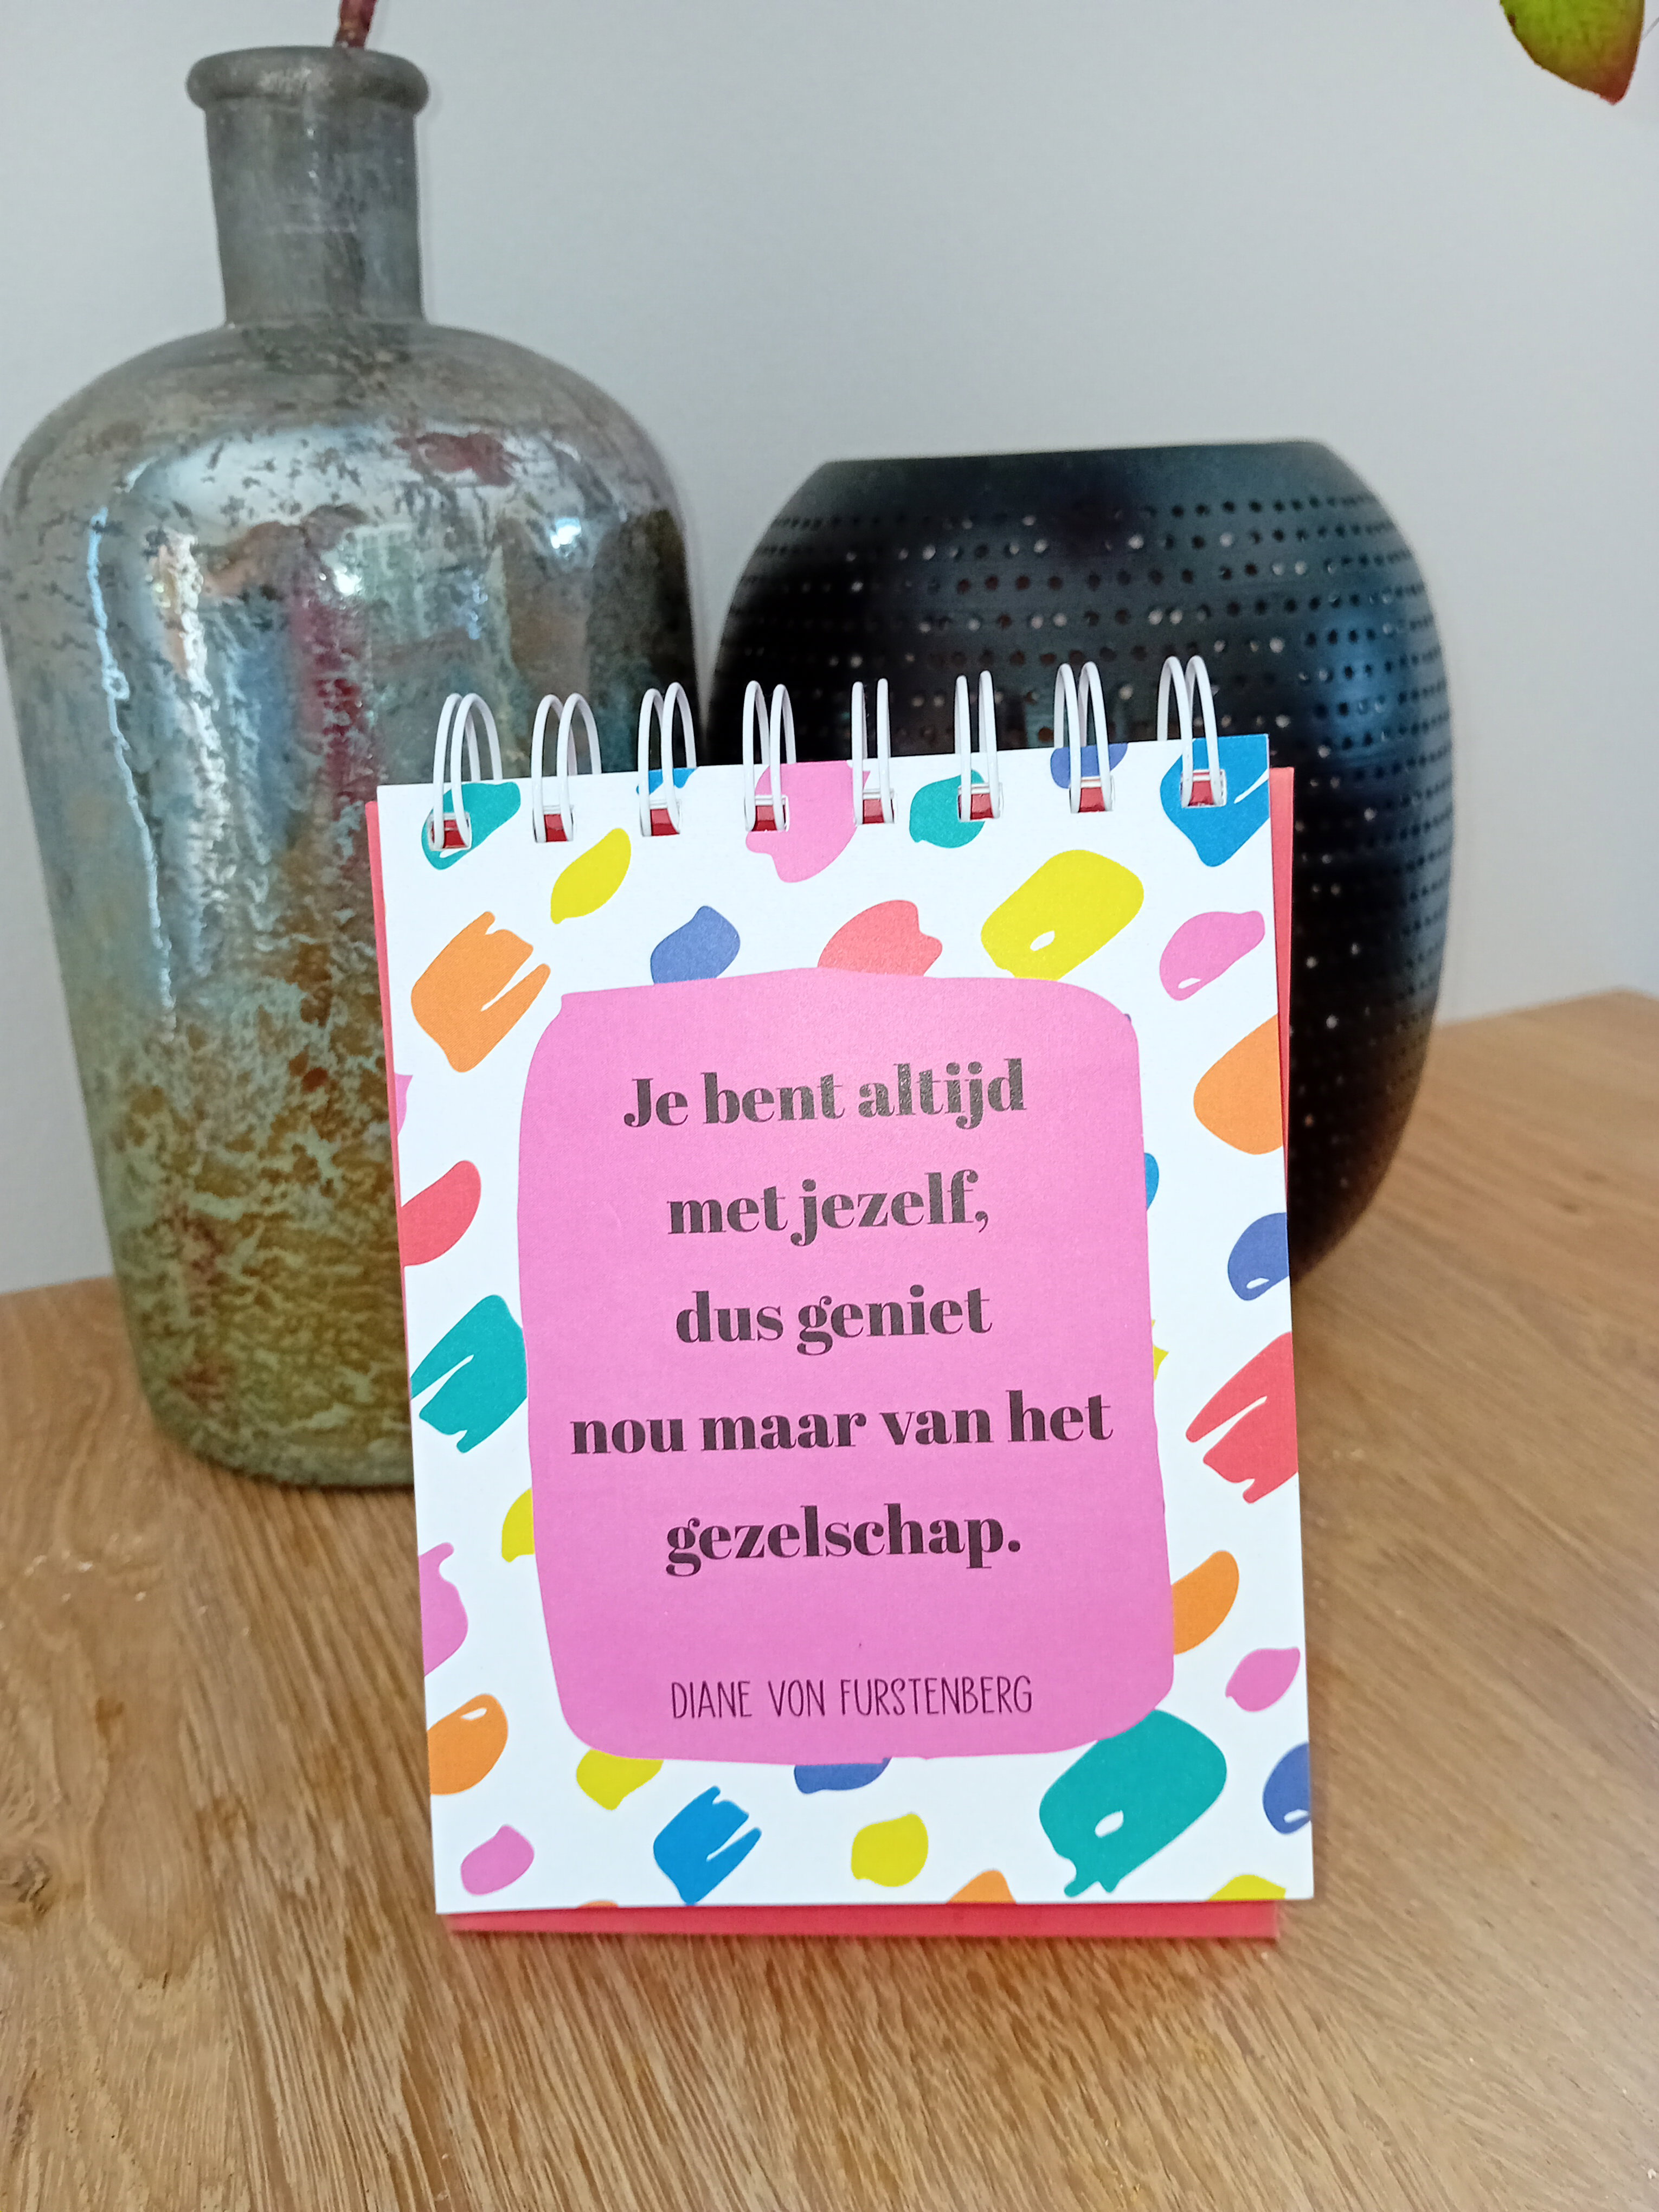 Je bent altijd
met jezelf,
dus geniet
nou maar van het
gezelschap.
DIANE VON FURSTENBERG